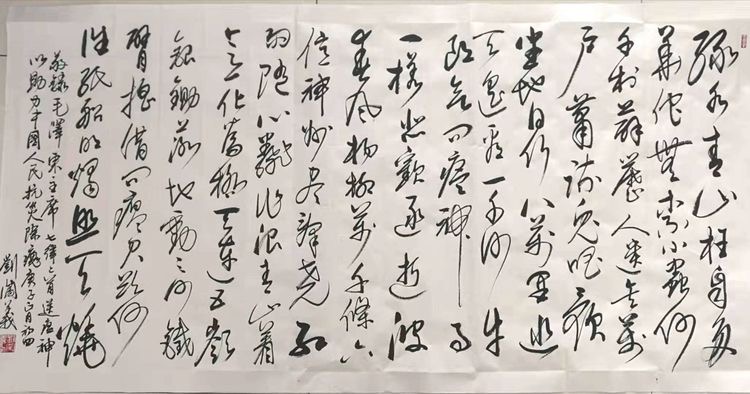 绿水青山枉自多
華佗無奈小蟲何
千村薜荔人遗矢萬
户蕭疏鬼唱歌
坐地日行八萬里巡
天遥看一千河牛
郎欲问瘟神事
一样悲歡逐逝波
春风杨柳萬千條六
億神州尽舜尧红
雨随心翻作浪青山着
意化为桥天连五岭
银锄落地動三河鐵
臂摇借问瘟君欲何
往纸船明烛照天燒
敬録毛澤東主席七律二首送瘟神
以助力中國人民抗災除瘟庚子正月初四